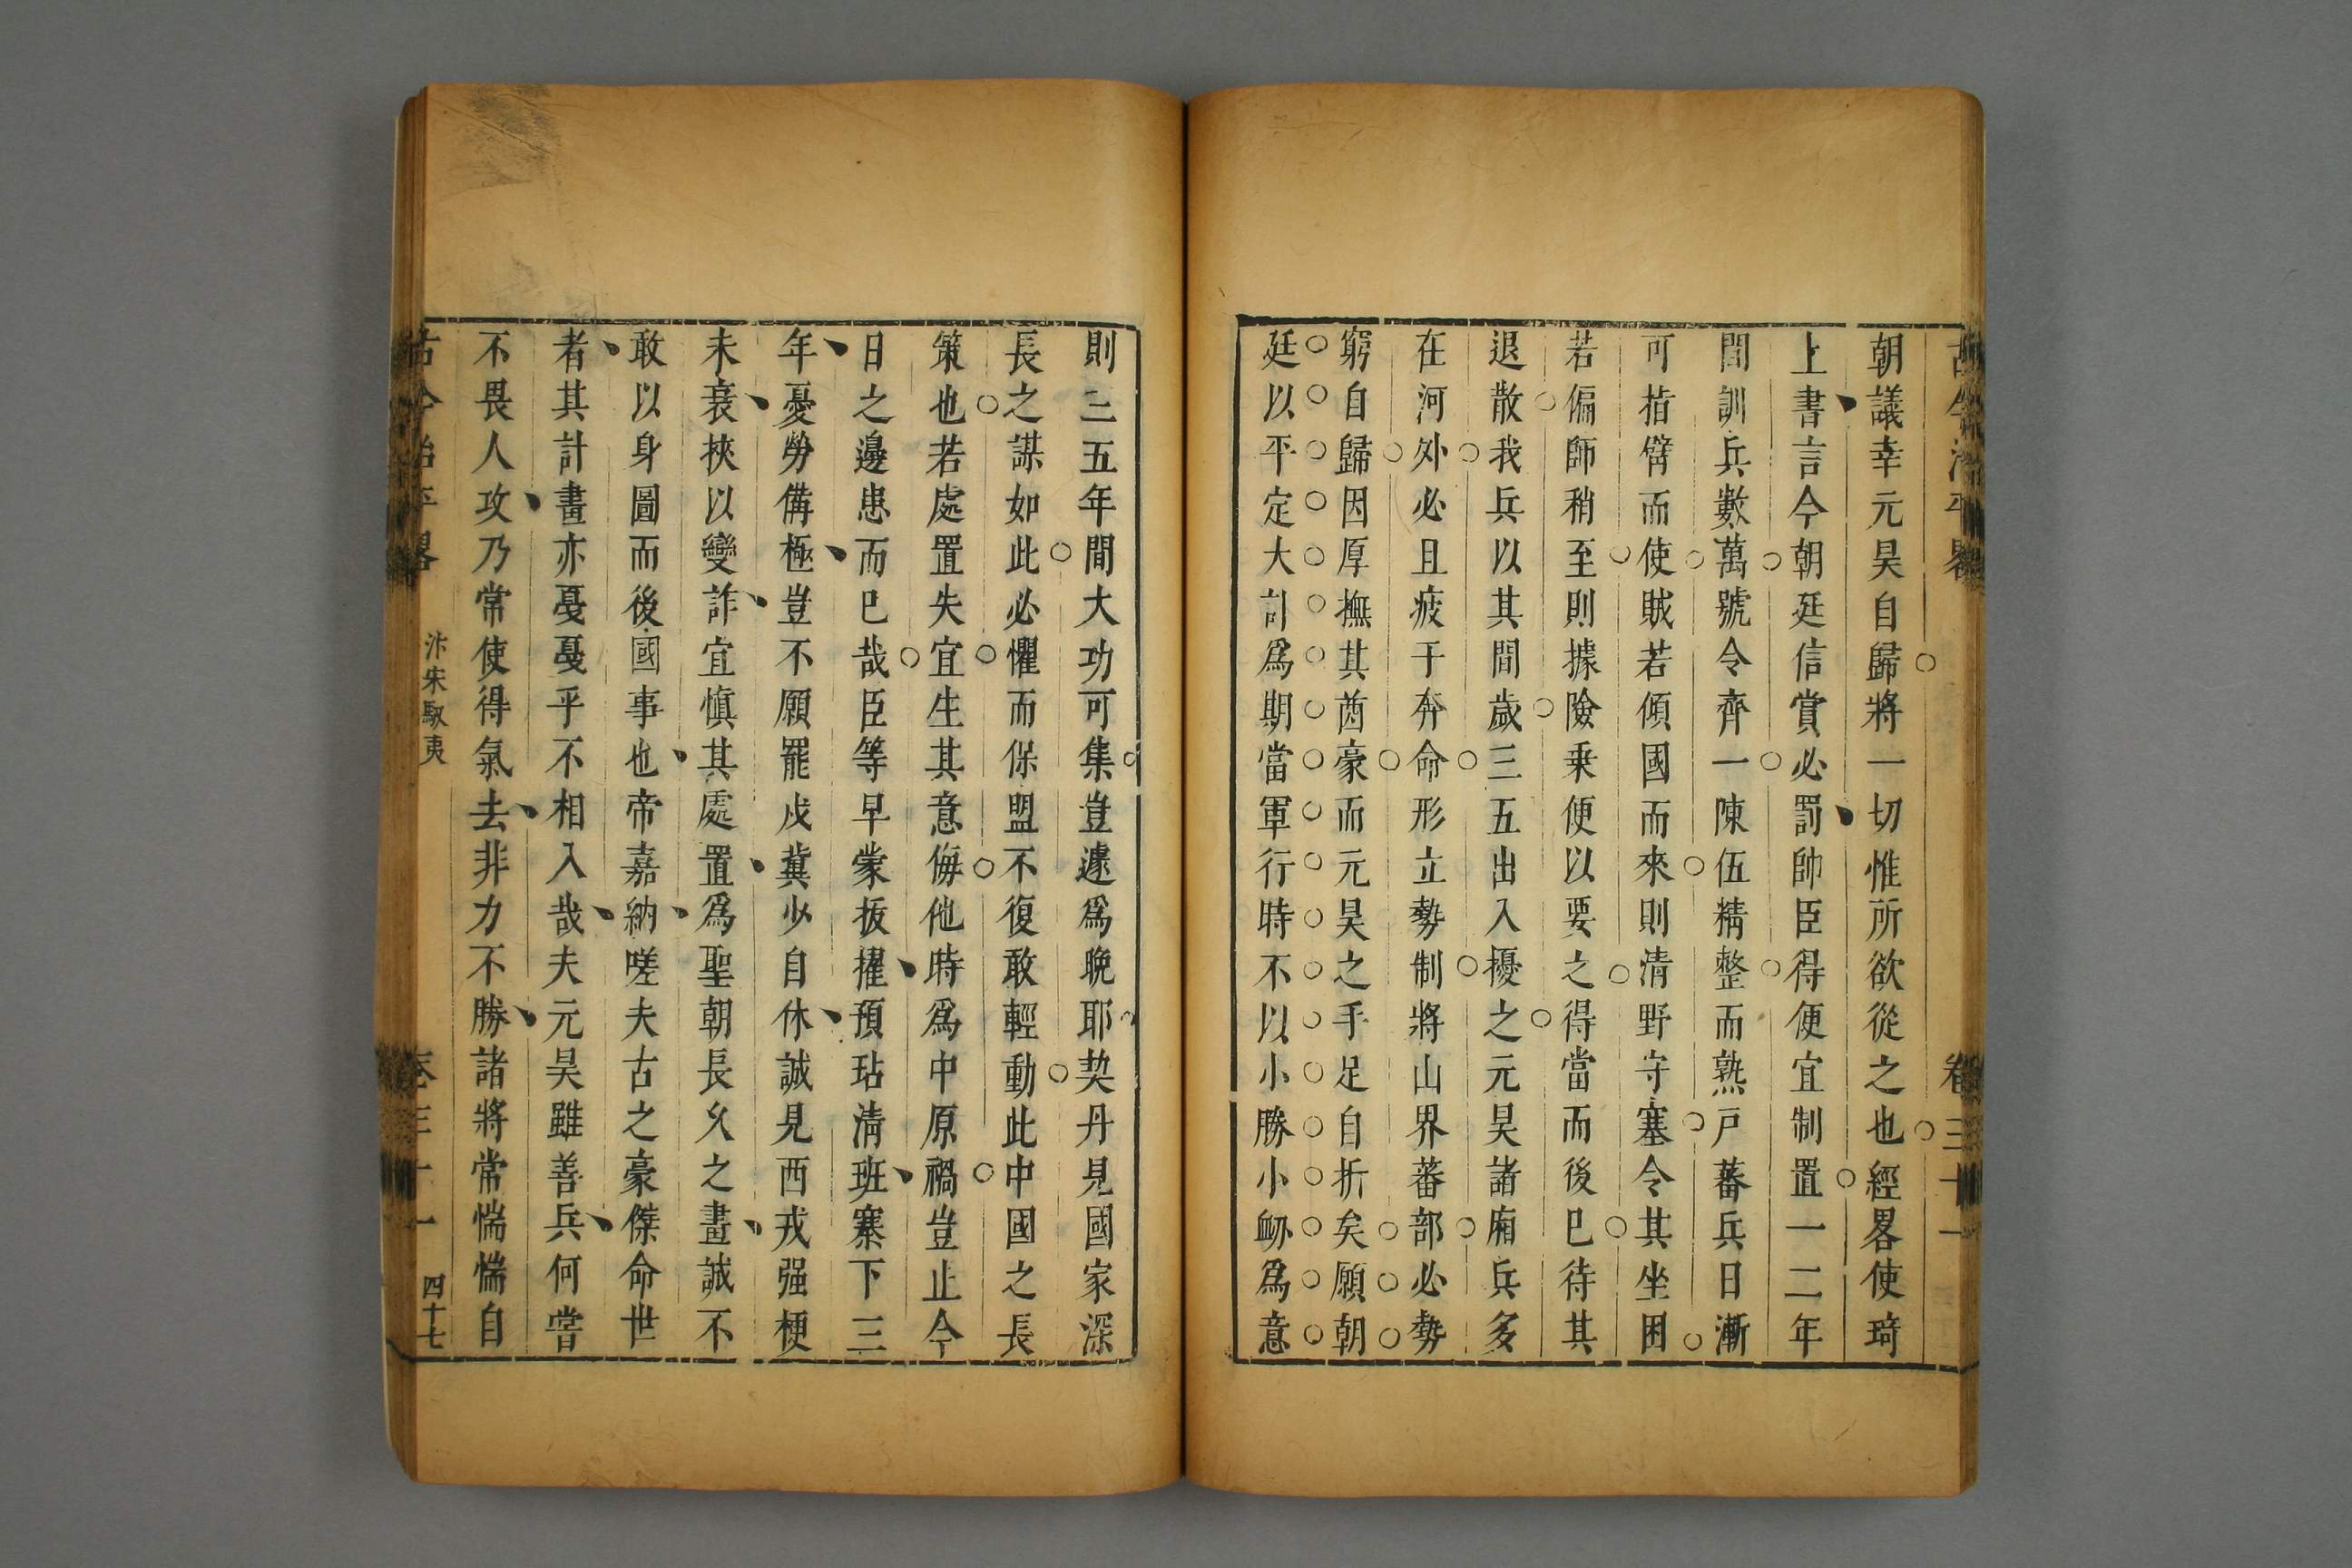 古今治平畧 卷三十一
朝議幸元昊自歸將一切惟所欲從之也經畧使琦
上書言今朝廷信賞必罰帥臣得便宜制置一二年
間訓兵數萬號令齊一陳伍精整而熟戸蕃兵日漸
可指臂而使賊若傾國而來則清野守塞令其坐困
若偏師稍至則據險乗便以要之得當而後已待其
退散我兵以其間歲三五出入擾之元昊諸廂兵多
在河外必且疲于奔命形立勢制將山界蕃部必勢
窮自歸因厚撫其酋豪而元昊之手足自折矣願朝
廷以平定大計爲期當軍行時不以小勝小衂爲意
則三五年間大功可集豈遽爲晚耶契丹見國家深
長之謀如此必懼而保盟不復敢輕動此中國之長
策也若處置失宜生其意侮他時爲中原禍豈止今
日之邊患而已哉臣等早蒙㧞擢預玷清班寨下三
年憂勞備極豈不願罷戍冀少自休誠見西戎强梗
未衰挾以變詐宜愼其處置爲聖朝長久之畫誠不
敢以身圖而後國事也帝嘉納嗟夫古之豪傑命世
者其計畫亦戞戞乎不相入哉夫元昊雖善兵何嘗
不畏人攻乃常使得氣去非力不勝諸將常惴惴自
古今治平畧 汴宋馭夷 卷三十一 四十七